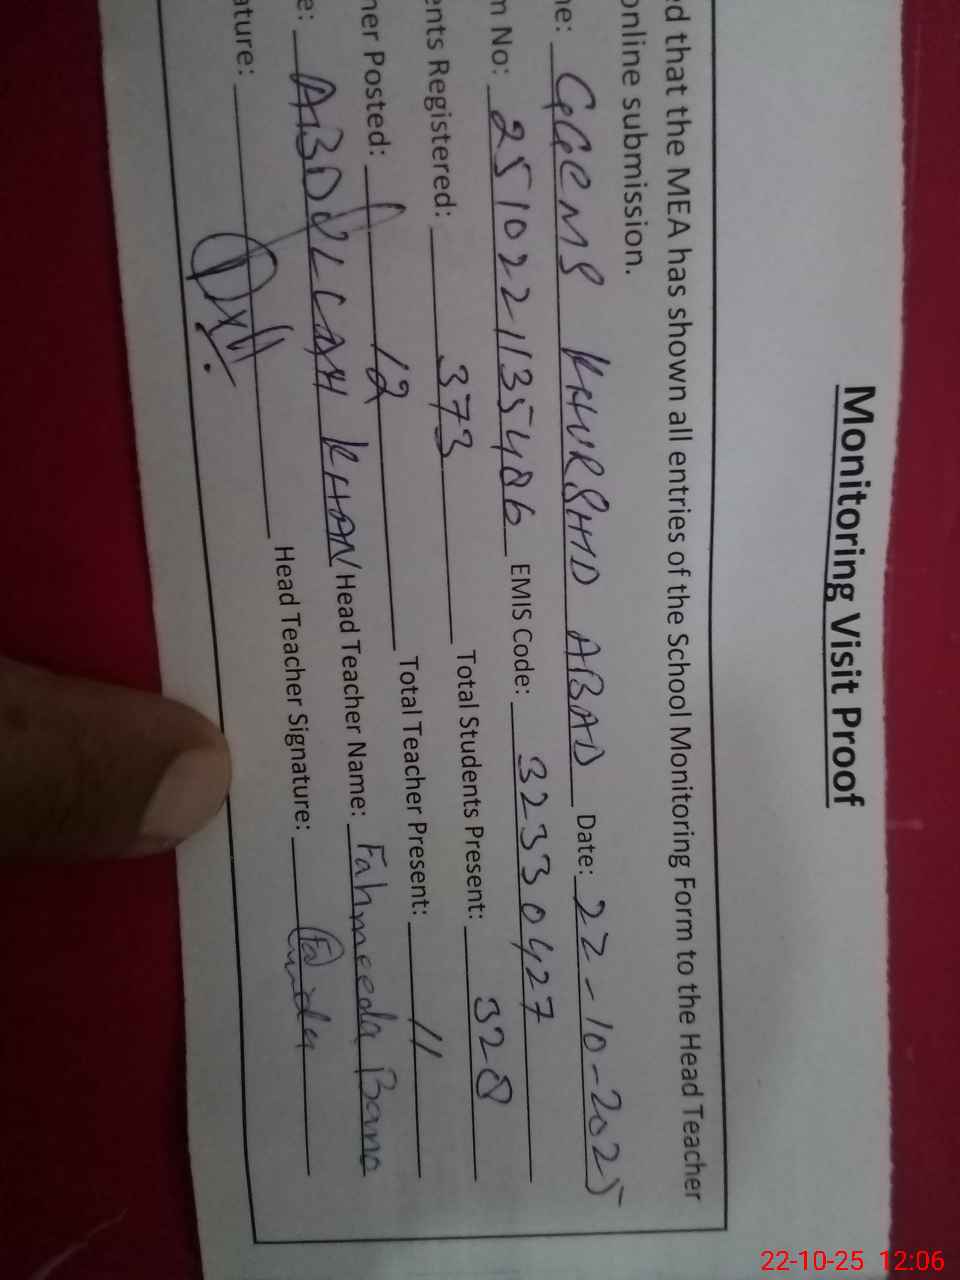 Monitoring Visit Proof
ed that the MEA has shown all entries of the School Monitoring Form to the Head Teacher
online submission.
ne: GGCMS KHURSHID ABAD Date: 22-10-2025
m No: 2510221135486 EMIS Code: 32330427
ents Registered: 373 Total Students Present: 328
her Posted: 12 Total Teacher Present: 11
e: ABDULLAH KHAN Head Teacher Name: Fahmeeda Bano
ature: Head Teacher Signature:
22-10-25 12:06